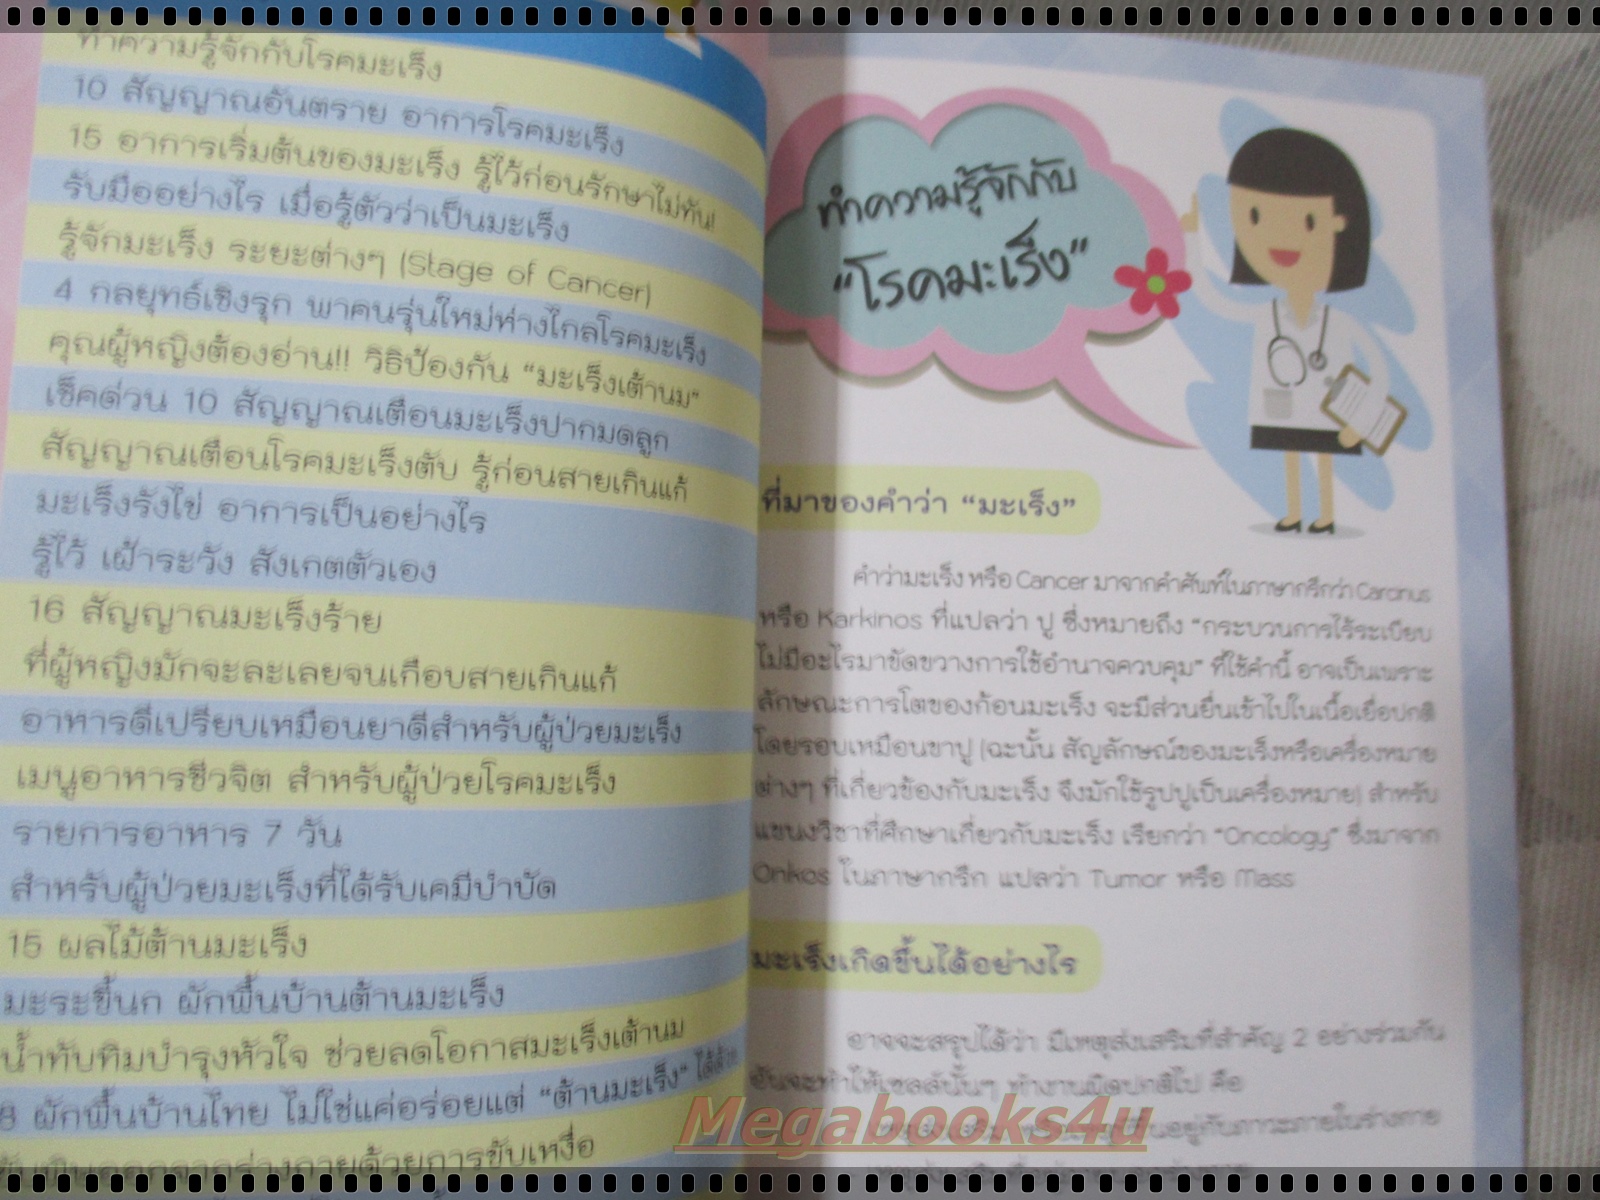 ทำความรู้จักกับโรคมะเร็ง
10 สัญญาณอันตราย อาการโรคมะเร็ง
15 อาการเริ่มต้นของมะเร็ง รู้ไว้ก่อนรักษาไม่ทัน!
รับมืออย่างไร เมื่อรู้ตัวว่าเป็นมะเร็ง
รู้จักมะเร็ง ระยะต่างๆ (Stage of Cancer)
4 กลยุทธ์เชิงรุก พาคนรุ่นใหม่ห่างไกลโรคมะเร็ง
คุณผู้หญิงต้องอ่าน!! วิธีป้องกัน "มะเร็งเต้านม"
เช็คด่วน 10 สัญญาณเตือนมะเร็งปากมดลูก
สัญญาณเตือนโรคมะเร็งตับ รู้ก่อนสายเกินแก้
มะเร็งรังไข่ อาการเป็นอย่างไร
รู้ไว้ เฝ้าระวัง สังเกตตัวเอง
16 สัญญาณมะเร็งร้าย
ที่ผู้หญิงมักจะละเลยจนเกือบสายเกินแก้
อาหารดีเปรียบเหมือนยาดีสำหรับผู้ป่วยมะเร็ง
เมนูอาหารชีวจิต สำหรับผู้ป่วยโรคมะเร็ง
รายการอาหาร 7 วัน
สำหรับผู้ป่วยมะเร็งที่ได้รับเคมีบำบัด
15 ผลไม้ต้านมะเร็ง
มะระขี้นก ผักพื้นบ้านต้านมะเร็ง
น้ำทับทิมบำรุงหัวใจ ช่วยลดโอกาสมะเร็งเต้านม
8 ผักพื้นบ้านไทย ไม่ใช่แค่อร่อยแต่ "ต้านมะเร็ง" ได้ด้วย
ออกจากร่างกายด้วยการขับเหงื่อ
ทำความรู้จักกับ
"โรคมะเร็ง"
ที่มาของคำว่า "มะเร็ง"
คำว่ามะเร็ง หรือ Cancer มาจากคำศัพท์ในภาษากรีกว่า Carcinus
หรือ Karkinos ที่แปลว่า ปู ซึ่งหมายถึง "กระบวนการไร้ระเบียบ
ไม่มีอะไรมาขัดขวางการใช้อำนาจควบคุม" ที่ใช้คำนี้ อาจเป็นเพราะ
ลักษณะการโตของก้อนมะเร็ง จะมีส่วนยื่นเข้าไปในเนื้อเยื่อปกติ
โดยรอบเหมือนขาปู (ฉะนั้น สัญลักษณ์ของมะเร็งหรือเครื่องหมาย
ต่างๆ ที่เกี่ยวข้องกับมะเร็ง จึงมักใช้รูปปูเป็นเครื่องหมาย) สำหรับ
แขนงวิชาที่ศึกษาเกี่ยวกับมะเร็ง เรียกว่า "Oncology" ซึ่งมาจาก
Onkos ในภาษากรีก แปลว่า Tumor หรือ Mass
มะเร็งเกิดขึ้นได้อย่างไร
อาจจะสรุปได้ว่า มีเหตุส่งเสริมที่สำคัญ 2 อย่างร่วมกัน
อันจะทำให้เซลล์นั้นๆ ทำงานผิดปกติไป คือ
ขึ้นอยู่กับภาวะภายในร่างกาย
Megabooks4u